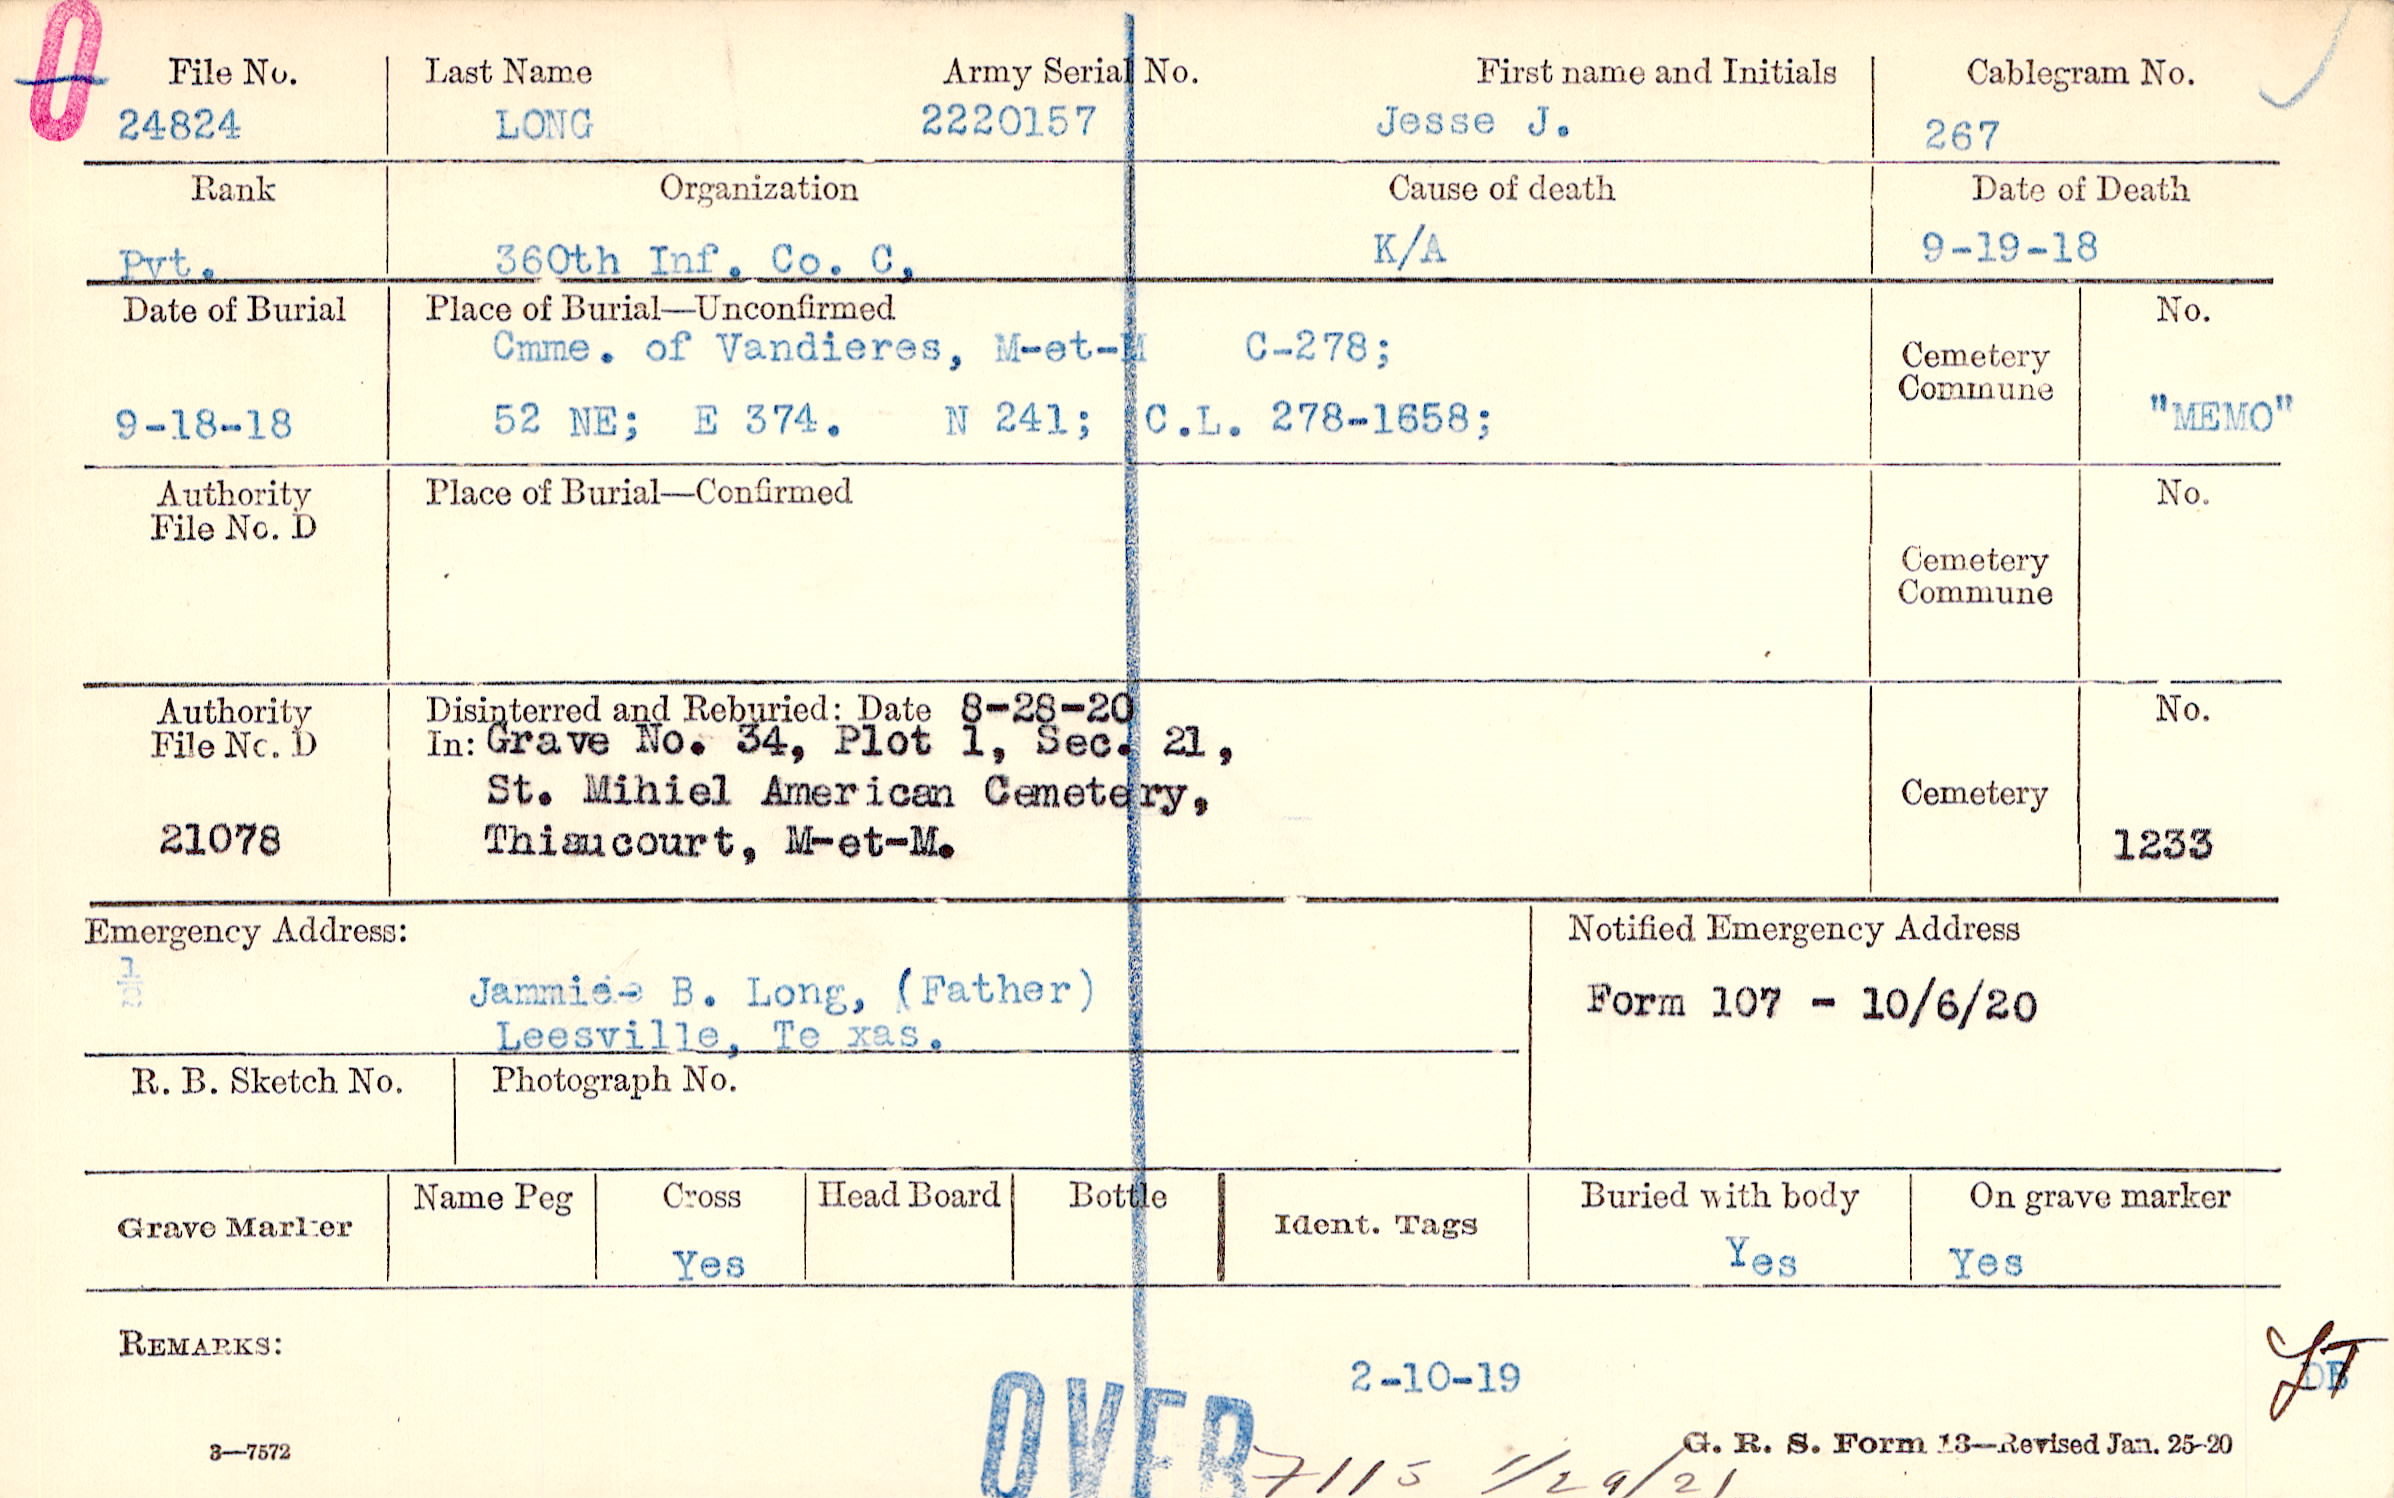 O
File No. Last Name Army Serial No. First name and Initials Cablegram No.
24824 LONG 2220157 Jesse J. 267
Rank Organization Cause of death Date of Death
Pvt. 360th Inf. Co. C, K/A 9-19-18
Date of Burial Place of Burial—Unconfirmed Cemetery Commune No.
Cmme. of Vandieres, M-et-M C-278;
9-18-18 52 NE; E 374. N 241; C.L. 278-1658; "MEMO"
Authority File No. D Place of Burial—Confirmed Cemetery Commune No.
Authority Disinterred and Reburied: Date 8-28-20 No.
File No. D In: Grave No. 34, Plot 1, Sec. 21,
St. Mihiel American Cemetery, Cemetery
21078 Thiaucourt, M-et-M. 1233
Emergency Address: Notified Emergency Address
1/2 Jammie B. Long, (Father) Form 107 - 10/6/20
Leesville, Te xas.
R. B. Sketch No. Photograph No.
Grave Marker Name Peg Cross Head Board Bottle Ident. Tags Buried with body On grave marker
Yes Yes Yes
REMARKS:
2-10-19 DB
OVER
3—7572 G. R. S. Form 13—Revised Jan. 25-20
7115 1/29/21